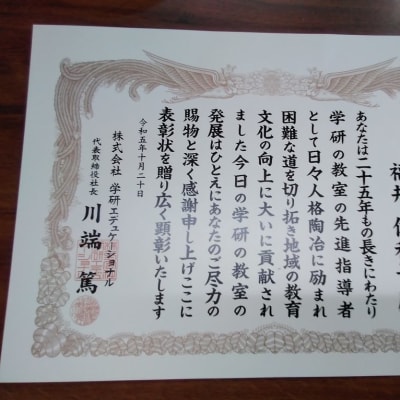 福井
あなたは二十五年もの長きにわたり
学研の教室の先進指導者
として日々人格陶冶に励まれ
困難な道を切り拓き地域の教育
文化の向上に大いに貢献され
ました今日の学研の教室の
発展はひとえにあなたのご尽力の
賜物と深く感謝申し上げここに
表彰状を贈り広く顕彰いたします
令和五年十月二十日
株式会社 学研エデュケーショナル
代表取締役社長 川端 篤